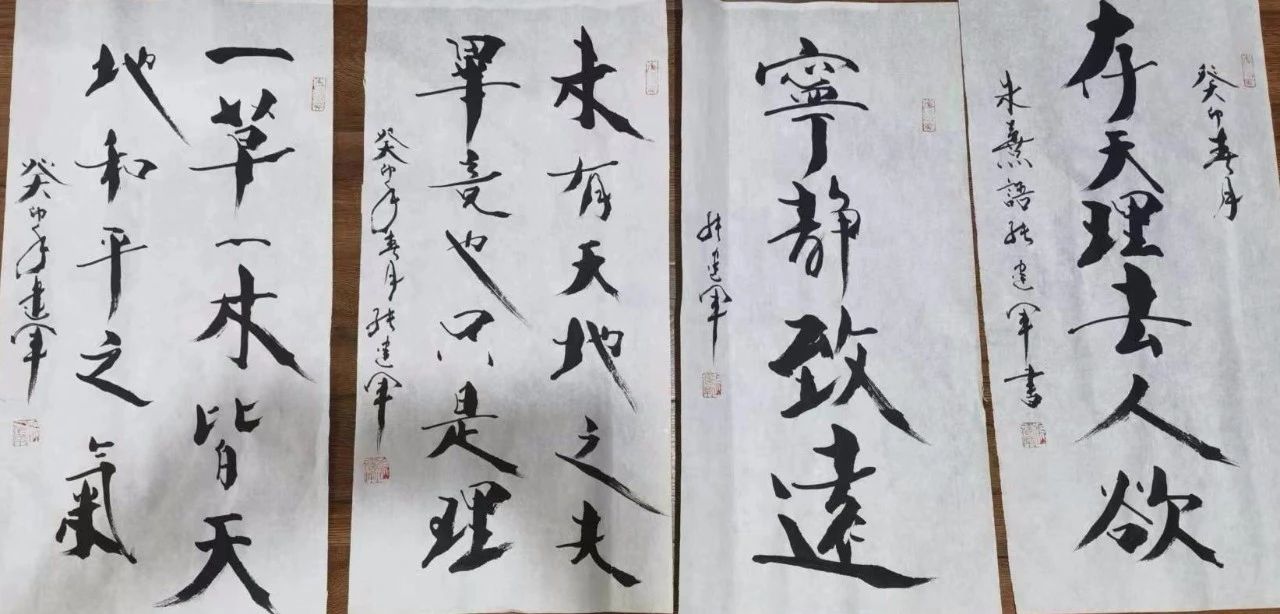 癸卯春月
存天理去人欲
朱熹語张建軍書
寧靜致遠
张建軍
未有天地之夫
畢竟也只是理
癸卯年春月张建軍
一草一木皆天
地和平之氣
癸卯年建軍